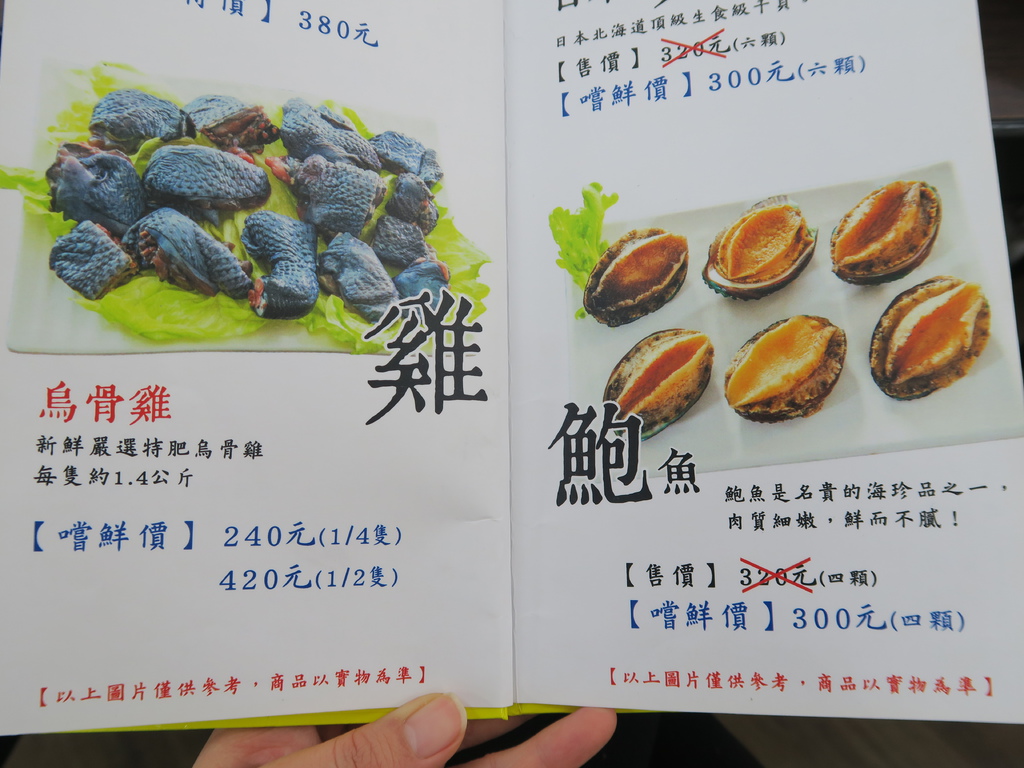 價】 380元
雞
烏骨雞
新鮮嚴選特肥烏骨雞
每隻約1.4公斤
【嚐鮮價】 240元(1/4隻)
420元(1/2隻)
【以上圖片僅供參考，商品以實物為準】
日本北海道頂級生食級干貝。
【售價】 320元(六顆)
【嚐鮮價】300元(六顆)
鮑魚
鮑魚是名貴的海珍品之一，
肉質細嫩，鮮而不膩！
【售價】 320元(四顆)
【嚐鮮價】300元(四顆)
【以上圖片僅供參考，商品以實物為準】